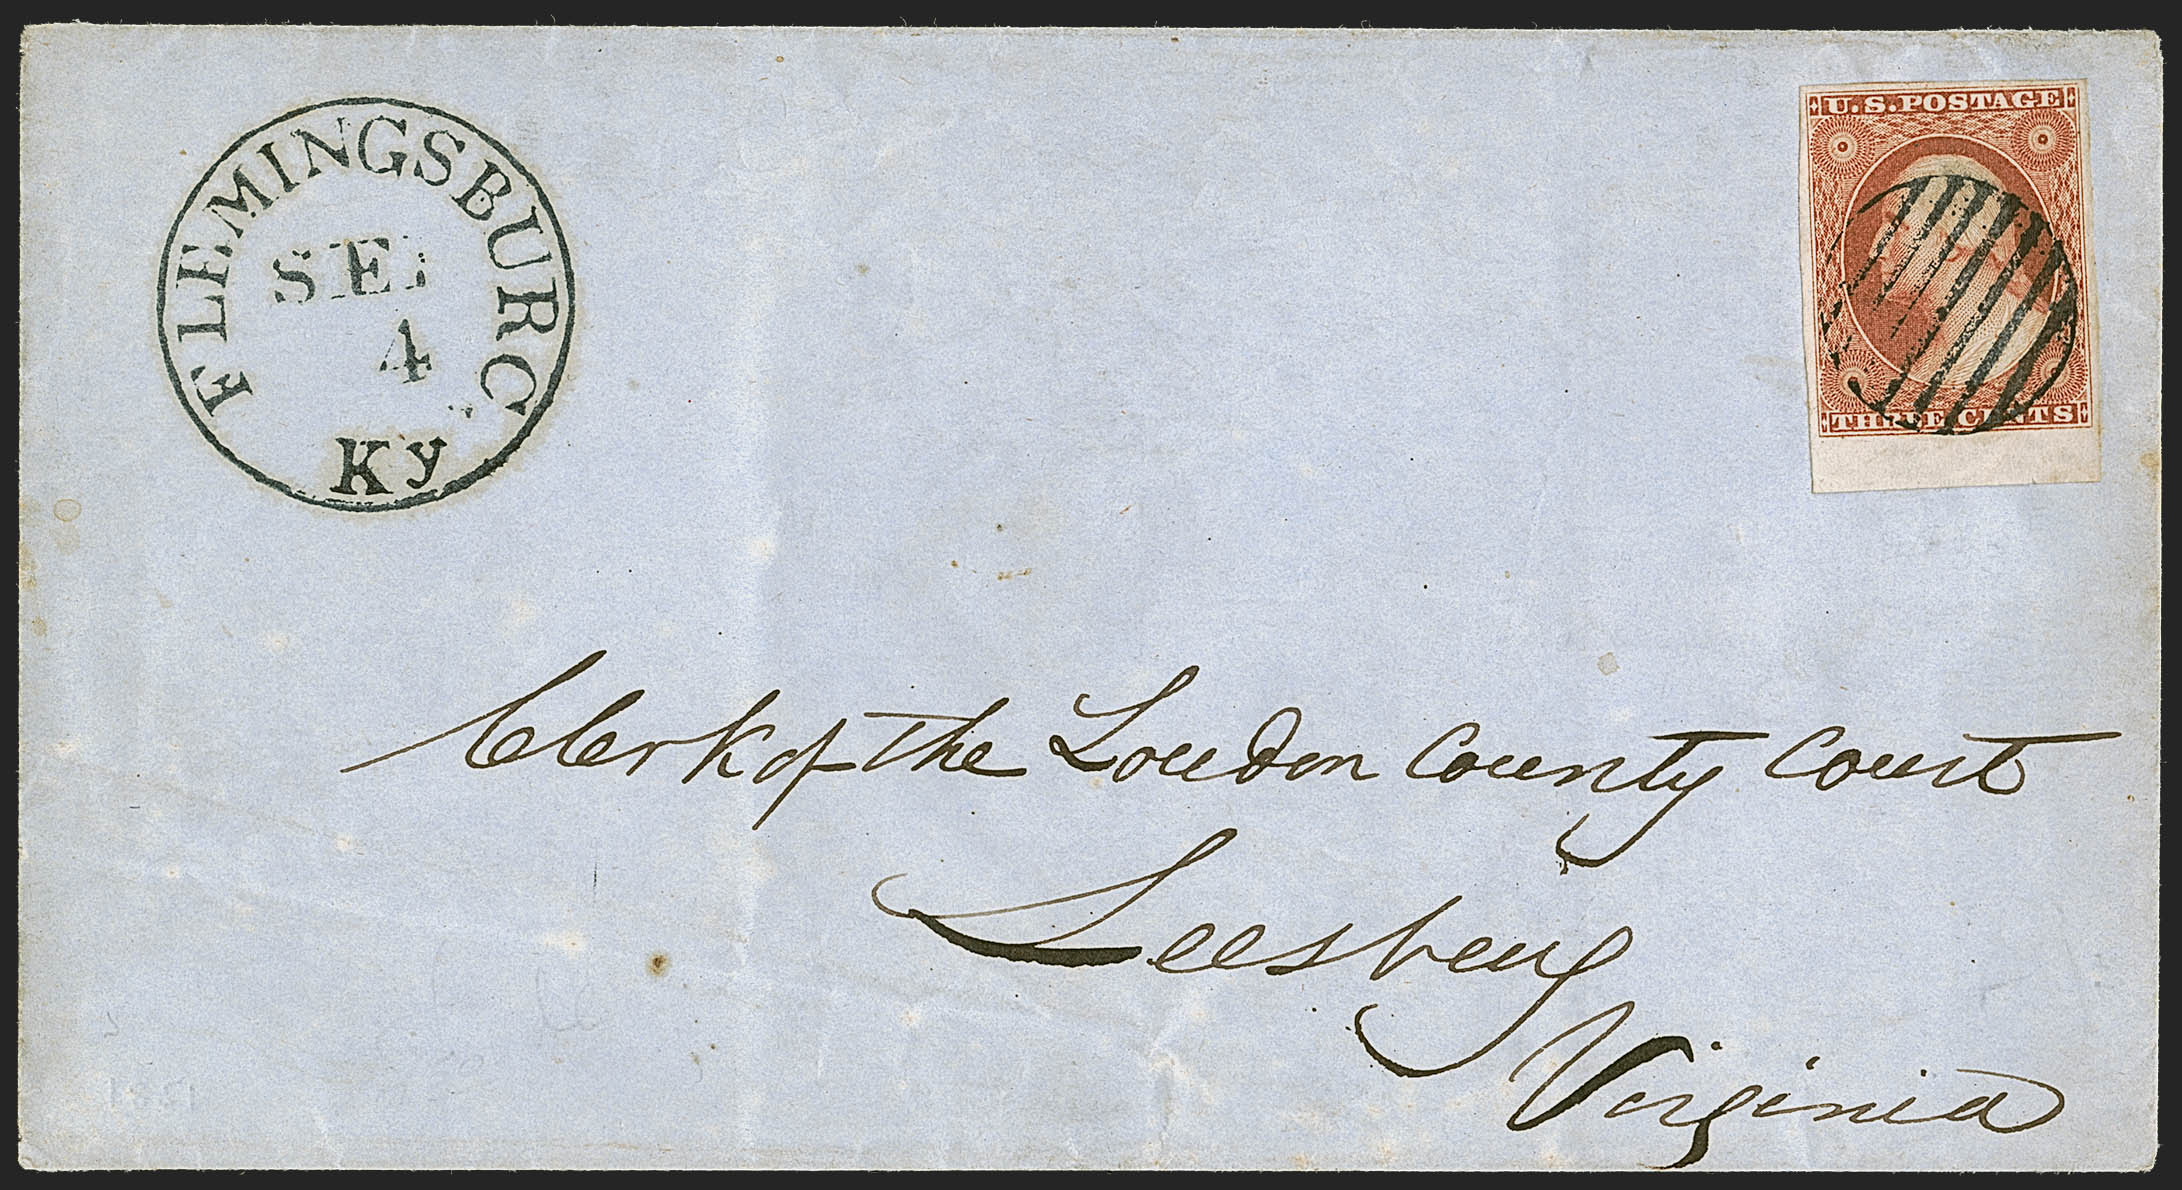 FLEMINGSBURG
SEP
4
Ky
U.S. POSTAGE
THREE CENTS
Clerk of the Loudon County Court
Leesburg
Virginia